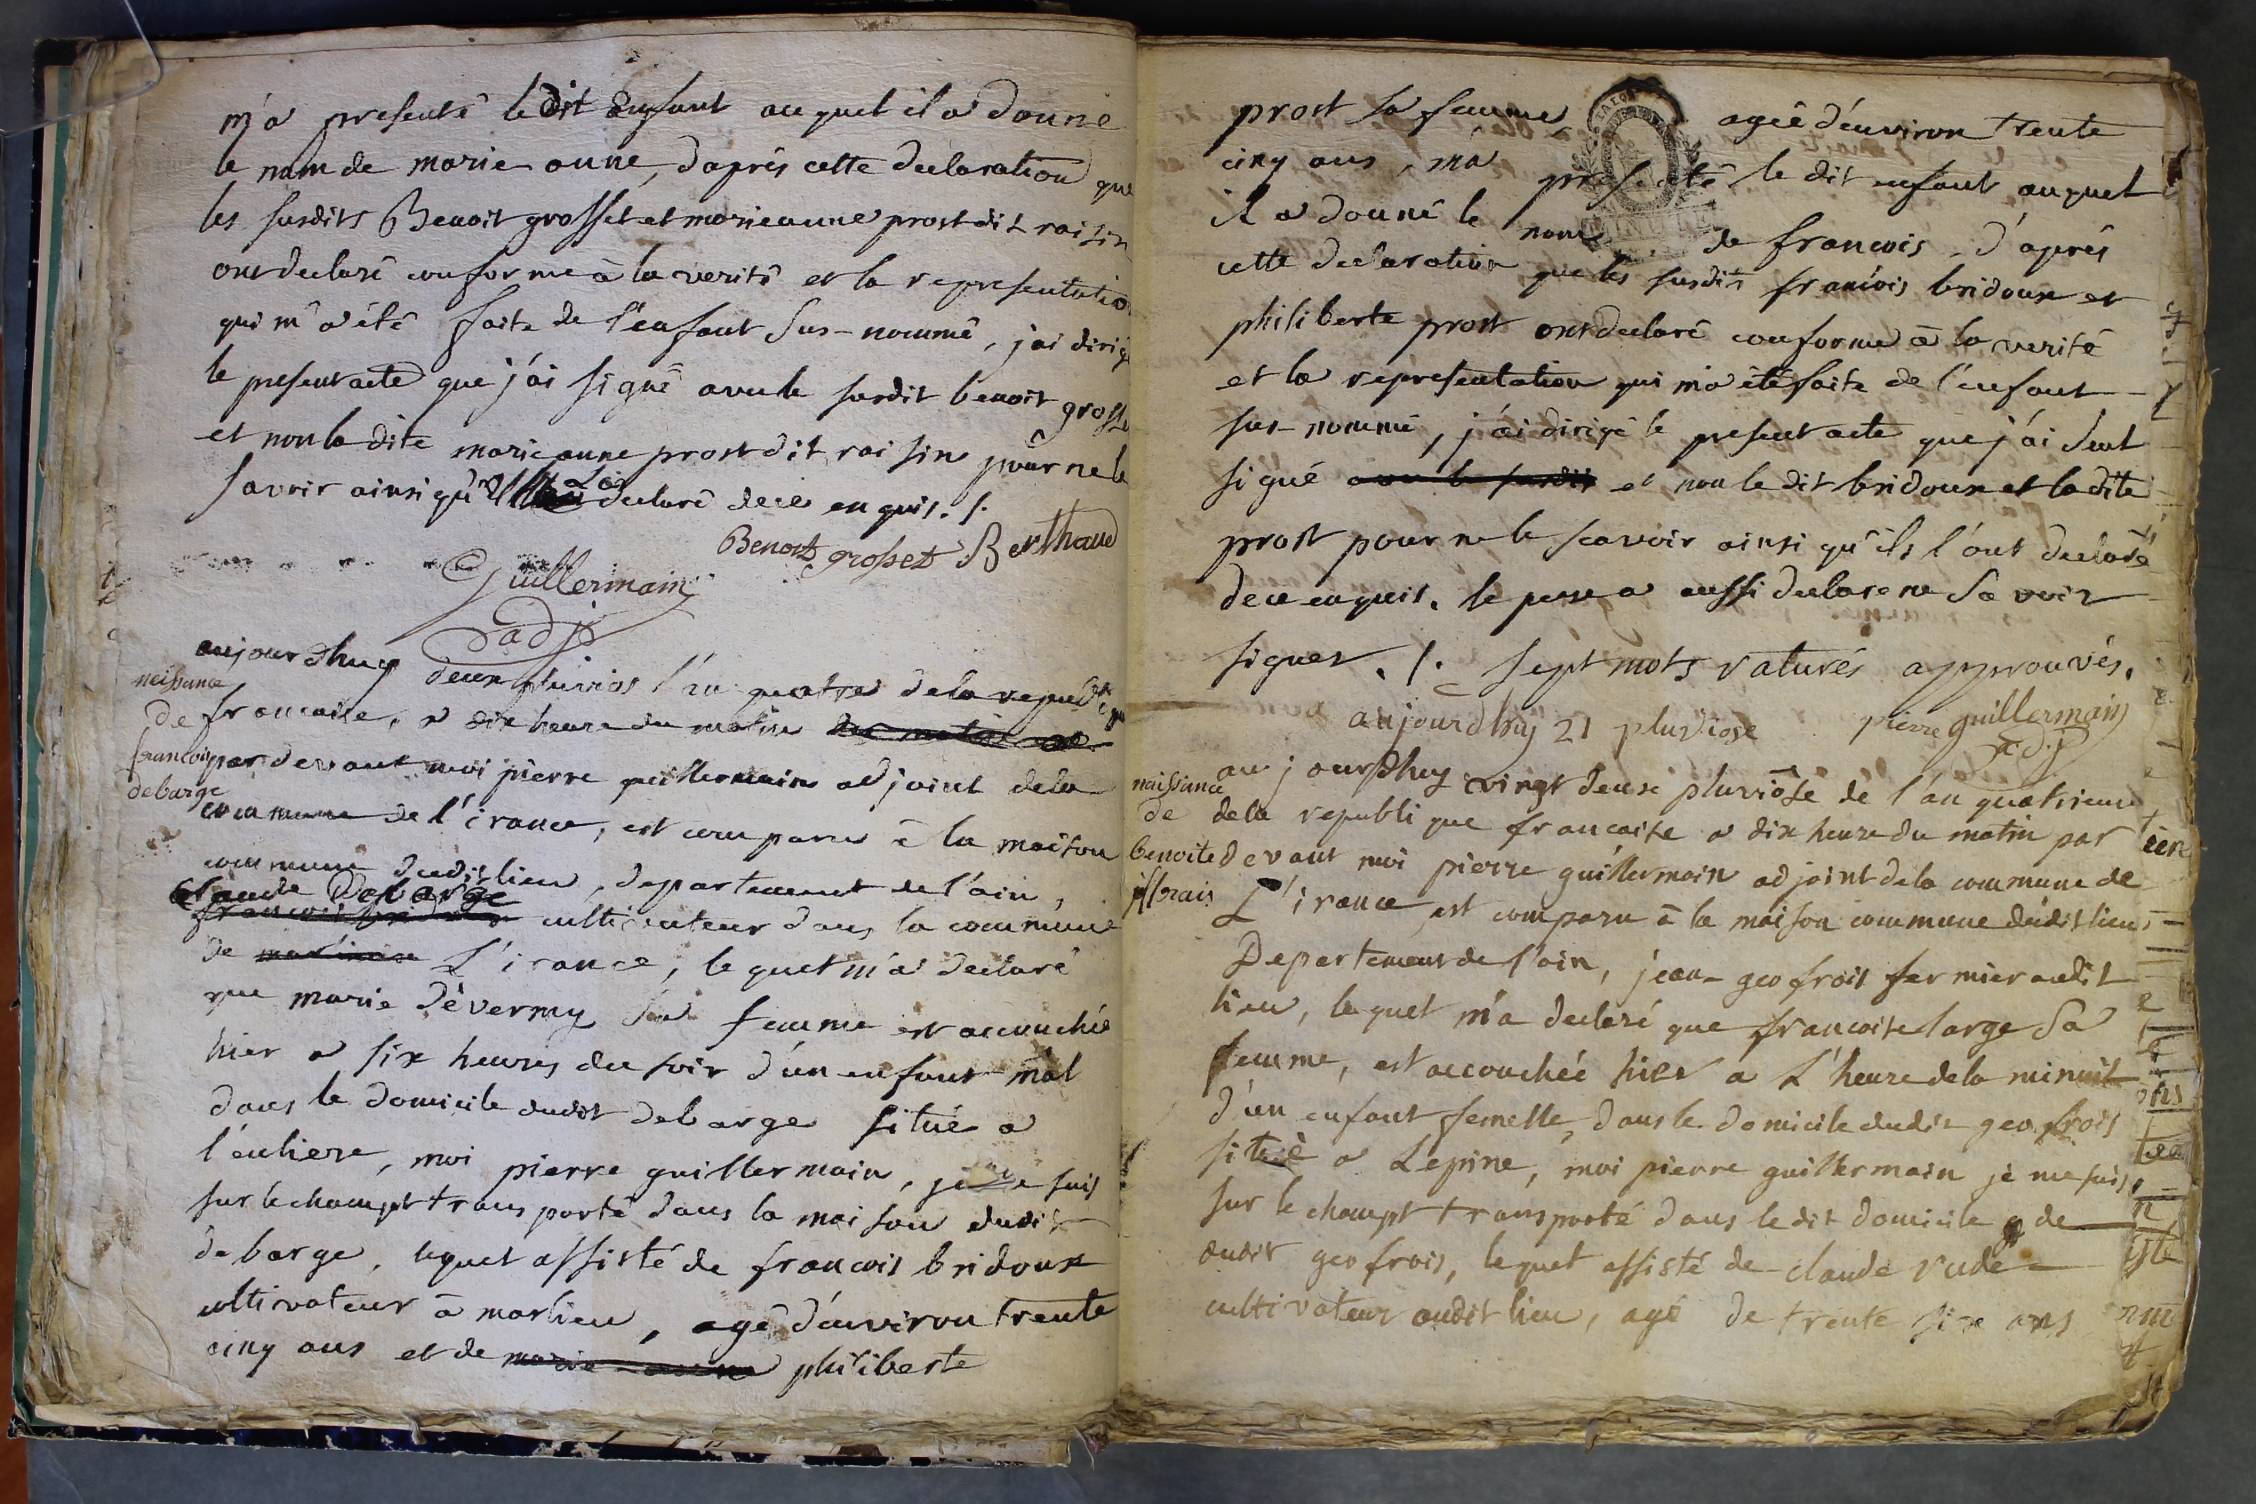 m'a presenté le dit Enfant auquel il a donné
le nom de marie anne, d'après cette declaration que
les susdits Benoit grosset et marieanne prost dit raisin
ont declaré conforme à la verité et la representation
qui m'a été faite de l'enfant sus-nommé, j'ai dirigé
le present acte que j'ai signé avec le susdit benoit grosset
et non la dite marieanne prost dit raisin pour ne le
savoir ainsi qu'il l'a declaré de ce enquis. /.
Benoit grosset Berthaud
Guillermain
adjt
aujourdhuy deux pluvios l'an quatre de la republique
naissance
de
francois
debarge
francaise, a dix heure du matin
par devant moi pierre guillermain adjoint de la
commune de l'irance, est comparu à la maison
commune dudit lieu, departement de l'ain,
Claude Debarge
francois bridoux cultivateur dans la commune
de L'irance, lequel m'a declaré
que marie dévermy sa femme est accouchée
hier a six heures du soir d'un enfant mâl
dans le domicile dudit debarge situé a
moi pierre guillermain, je me suis
sur le champt transporté dans la maison dudit
debarge, lequel assisté de francois bridoux
cultivateur à marlieu, agé d'environ trente
cinq ans et de philiberte
prost sa femme agée d'environ trente
cinq ans, m'a presenté le dit enfant auquel
il a donné le nom de francois, d'après
cette declaration que les susdits francois bridoux et
philiberte prost ont declaré conforme à la verité
et la representation qui m'a été faite de l'enfant
sus-nommé, j'ai dirigé le present acte que j'ai seul
signé avec le susdit et non le dit bridoux et la dite
prost pour ne le scavoir ainsi qu'ils l'ont declaré
de ce enquis. le pere a aussi declare ne savoir
signer. /. sept mots raturés approuvés.
aujourdhuy 21 pluviose pierre guillermain
adj
naissance
de
benoite
aujourdhuy vingt deux pluviôse de l'an quatrieme
de la republique francaise a dix heure du matin par
devant moi pierre guillermain adjoint de la commune de
L'irance, est comparu à la maison commune dudit lieu,
Departement de l'ain, jean-geofrois fermier audit
lieu, lequel m'a declaré que francoise large sa
femme, est accouchée hier a L'heure de la minuit
d'un enfant femelle, dans le domicile dudit geofrois
situé a Lepine, moi pierre guillermain je me suis,
sur le champt transporté dans le dit domicile de
dudit geofrois, lequel assisté de claude rude
cultivateur audit lieu, agé de trente six ans